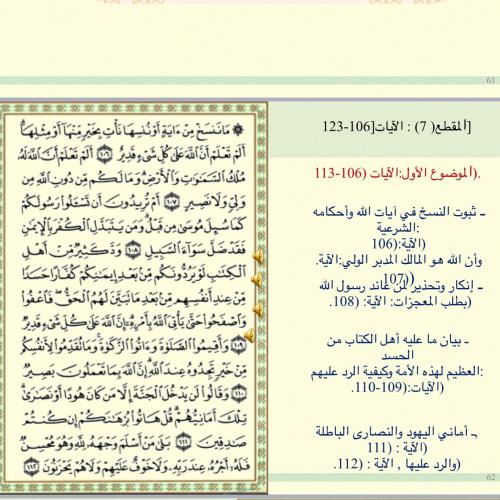 61
[المقطع( 7) : الآيات[106-123
.(الموضوع الأول:الآيات (106-113
ـ ثبوت النسخ في آيات الله وأحكامه
الشرعية:
(الآية:(106
وأن الله هو المالك المدبر الولي:الآية.
((107
ـ إنكار وتحذير لمن عاند رسول الله
(بطلب المعجزات: الآية: (108.
ـ بيان ما عليه أهل الكتاب من
الحسد
العظيم لهذه الأمة وكيفية الرد عليهم:
(الآيات:(109-110.
ـ أماني اليهود والنصارى الباطلة
(الآية : (111
(والرد عليها , الآية : (112.
62
۞ مَا نَنسَخْ مِنْ ءَايَةٍ أَوْ نُنسِهَا نَأْتِ بِخَيْرٍ مِّنْهَا أَوْ مِثْلِهَا
أَلَمْ تَعْلَمْ أَنَّ ٱللَّهَ عَلَىٰ كُلِّ شَىْءٍ قَدِيرٌ ١٠٦ أَلَمْ تَعْلَمْ أَنَّ ٱللَّهَ لَهُۥ
مُلْكُ ٱلسَّمَٰوَٰتِ وَٱلْأَرْضِ وَمَا لَكُم مِّن دُونِ ٱللَّهِ مِن
وَلِىٍّ وَلَا نَصِيرٍ ١٠٧ أَمْ تُرِيدُونَ أَن تَسْـَٔلُوا۟ رَسُولَكُمْ
كَمَا سُئِلَ مُوسَىٰ مِن قَبْلُ وَمَن يَتَبَدَّلِ ٱلْكُفْرَ بِٱلْإِيمَٰنِ
فَقَدْ ضَلَّ سَوَآءَ ٱلسَّبِيلِ ١٠٨ وَدَّ كَثِيرٌ مِّنْ أَهْلِ
ٱلْكِتَٰبِ لَوْ يَرُدُّونَكُم مِّنۢ بَعْدِ إِيمَٰنِكُمْ كُفَّارًا حَسَدًا
مِّنْ عِندِ أَنفُسِهِم مِّنۢ بَعْدِ مَا تَبَيَّنَ لَهُمُ ٱلْحَقُّ فَٱعْفُوا۟
وَٱصْفَحُوا۟ حَتَّىٰ يَأْتِىَ ٱللَّهُ بِأَمْرِهِۦٓ إِنَّ ٱللَّهَ عَلَىٰ كُلِّ شَىْءٍ قَدِيرٌ
١٠٩ وَأَقِيمُوا۟ ٱلصَّلَوٰةَ وَءَاتُوا۟ ٱلزَّكَوٰةَ وَمَا تُقَدِّمُوا۟ لِأَنفُسِكُم
مِّنْ خَيْرٍ تَجِدُوهُ عِندَ ٱللَّهِ إِنَّ ٱللَّهَ بِمَا تَعْمَلُونَ بَصِيرٌ
١١٠ وَقَالُوا۟ لَن يَدْخُلَ ٱلْجَنَّةَ إِلَّا مَن كَانَ هُودًا أَوْ نَصَٰرَىٰ
تِلْكَ أَمَانِيُّهُمْ قُلْ هَاتُوا۟ بُرْهَٰنَكُمْ إِن كُنتُمْ
صَٰدِقِينَ ١١١ بَلَىٰ مَنْ أَسْلَمَ وَجْهَهُۥ لِلَّهِ وَهُوَ مُحْسِنٌ
فَلَهُۥٓ أَجْرُهُۥ عِندَ رَبِّهِۦ وَلَا خَوْفٌ عَلَيْهِمْ وَلَا هُمْ يَحْزَنُونَ ١١٢